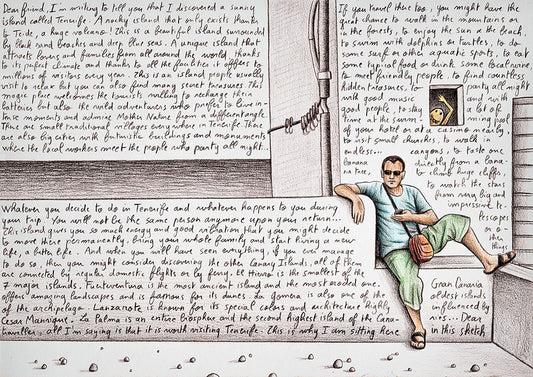 Dear friend, I'm writing to tell you that I discovered a sunny
island called Tenerife. A rocky island that only exists thanks
to Teide, a huge volcano! This is a beautiful island surrounded
by black sand beaches and deep blue seas. A unique island that
attracts lovers and families from all around the world thanks
to its perfect climate and thanks to all the facilities it offers to
millions of visitors every year. This is an island people usually
visit to relax but you can also find many secret treasures. This
magic place welcomes the tourists willing to recharge their
batteries but also the wild adventurers who prefer to live in-
tense moments and admire Mother Nature from a different angle.
There are small traditional villages everywhere in Tenerife. There
are also big cities with futuristic buildings and monuments
where the local workers meet the people who party all night...
If you travel there too, you might have the
great chance to walk in the mountains or
in the forests, to enjoy the sun at the beach,
to swim with dolphins or turtles, to do
some surf or other aquatic sports, to eat
some typical food or drink some local wine,
to meet friendly people, to find countless
hidden treasures, to party all night
with good music and with
good people, to stay a lot of
time at the swimming pool
of your hotel or at a casino nearby
to visit small churches, to walk in
endless... canyons, to taste one
banana directly from a bana-
na tree, to climb huge cliffs,
to watch the stars
from very big and
impressive te-
lescopes
or do
other
things
Whatever you decide to do in Tenerife and whatever happens to you during
your trip. You will not be the same person anymore upon your return...
This island gives you so much energy and good vibration that you might decide
to move there permanently, bring your whole family and start living a new
life, a better life. And when you will have seen everything, if you ever manage
to do so, then you might consider discovering the other Canary Islands, all of them
are connected by regular domestic flights or by ferry. El Hierro is the smallest of the
7 major islands. Fuerteventura is the most ancient island and the most eroded one. Gran Canaria
offers amazing landscapes and is famous for its dunes. La Gomera is also one of the oldest islands
of the archipelago. Lanzarote is known for its special colors and architecture highly influenced by
Cesar Manrique. La Palma is an entire biosphere and the second highest island of the Cana- ries... Dear
traveller, all I'm saying is that it is worth visiting Tenerife. This is why I am sitting here in this sketch